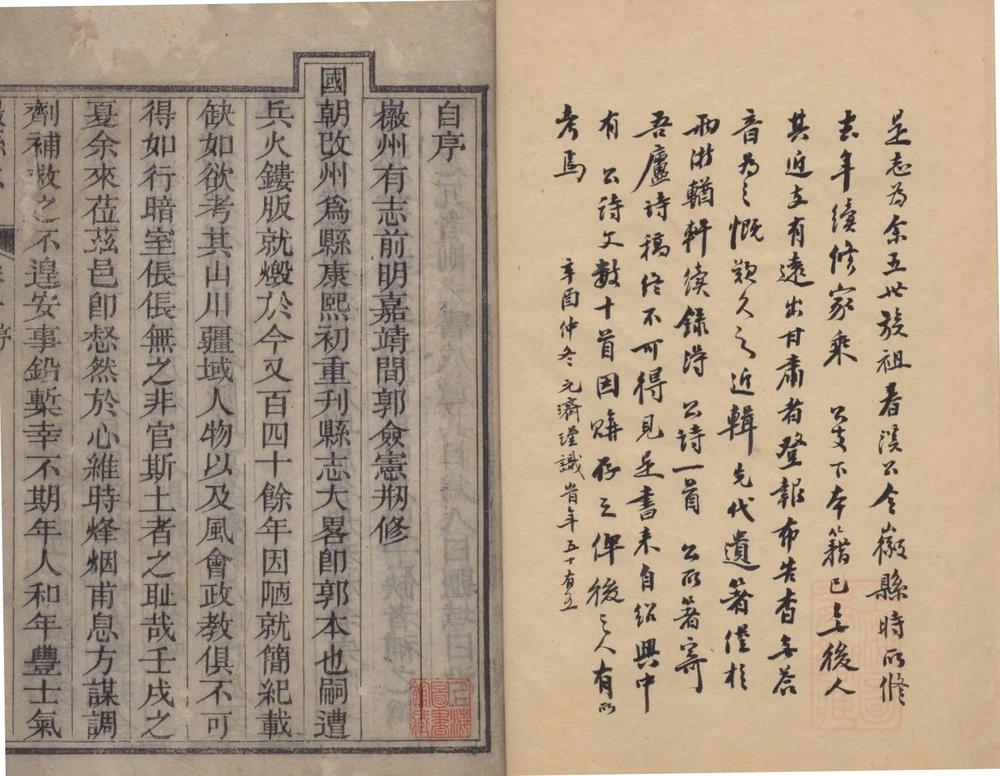 是志為余五世族祖春溪公令徽縣時所修
去年續修家乘　公支下本籍已無後人
其近支有遠出甘肅者登報布告杳無答
音為之慨歎久之近輯先代遺著僅於
兩浙輶軒續錄得　公詩一首　公所著寄
吾廬詩稿終不可得見是書來自紹興中
有　公詩文數十首因購存之俾後之人有所
考焉
辛酉仲冬元濟謹識時年五十有五
自序
徽州有志前明嘉靖間郭僉憲刱修
國朝改州為縣康熙初重刊縣志大畧卽郭本也嗣遭
兵火鏤版就燬於今又百四十餘年因陋就簡紀載
缺如欲考其山川疆域人物以及風會政教俱不可
得如行暗室倀倀無之非官斯土者之耻哉壬戌之
夏余來莅茲邑卽惄然於心維時烽烟甫息方謀調
劑補救之不遑安事鉛槧幸不期年人和年豐士氣